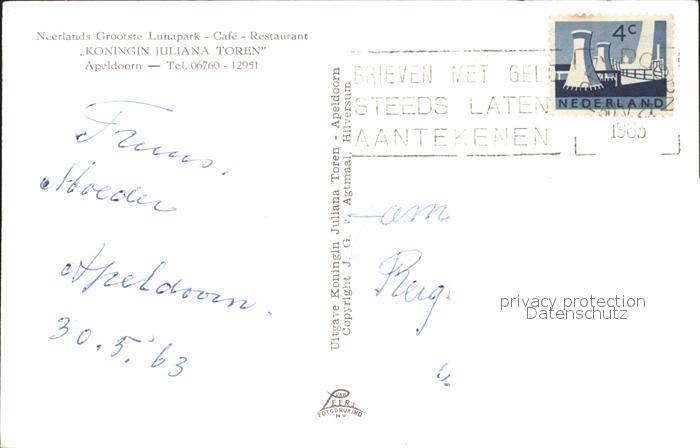 Neerlands Grootste Lunapark - Café - Restaurant
„KONINGIN JULIANA TOREN”
Apeldoorn — Tel. 06760 - 12951
Truus.
Moeder
Apeldoorn.
30.5.'63
Uitgave Koningin Juliana Toren - Apeldoorn
Copyright J. G. v. Agtmaal, Hilversum
VAN
LEER's
FOTODRUKIND
NV
4c
NEDERLAND
BRIEVEN MET GELD
STEEDS LATEN
AANTEKENEN
1963
Fam
privacy protection
Datenschutz